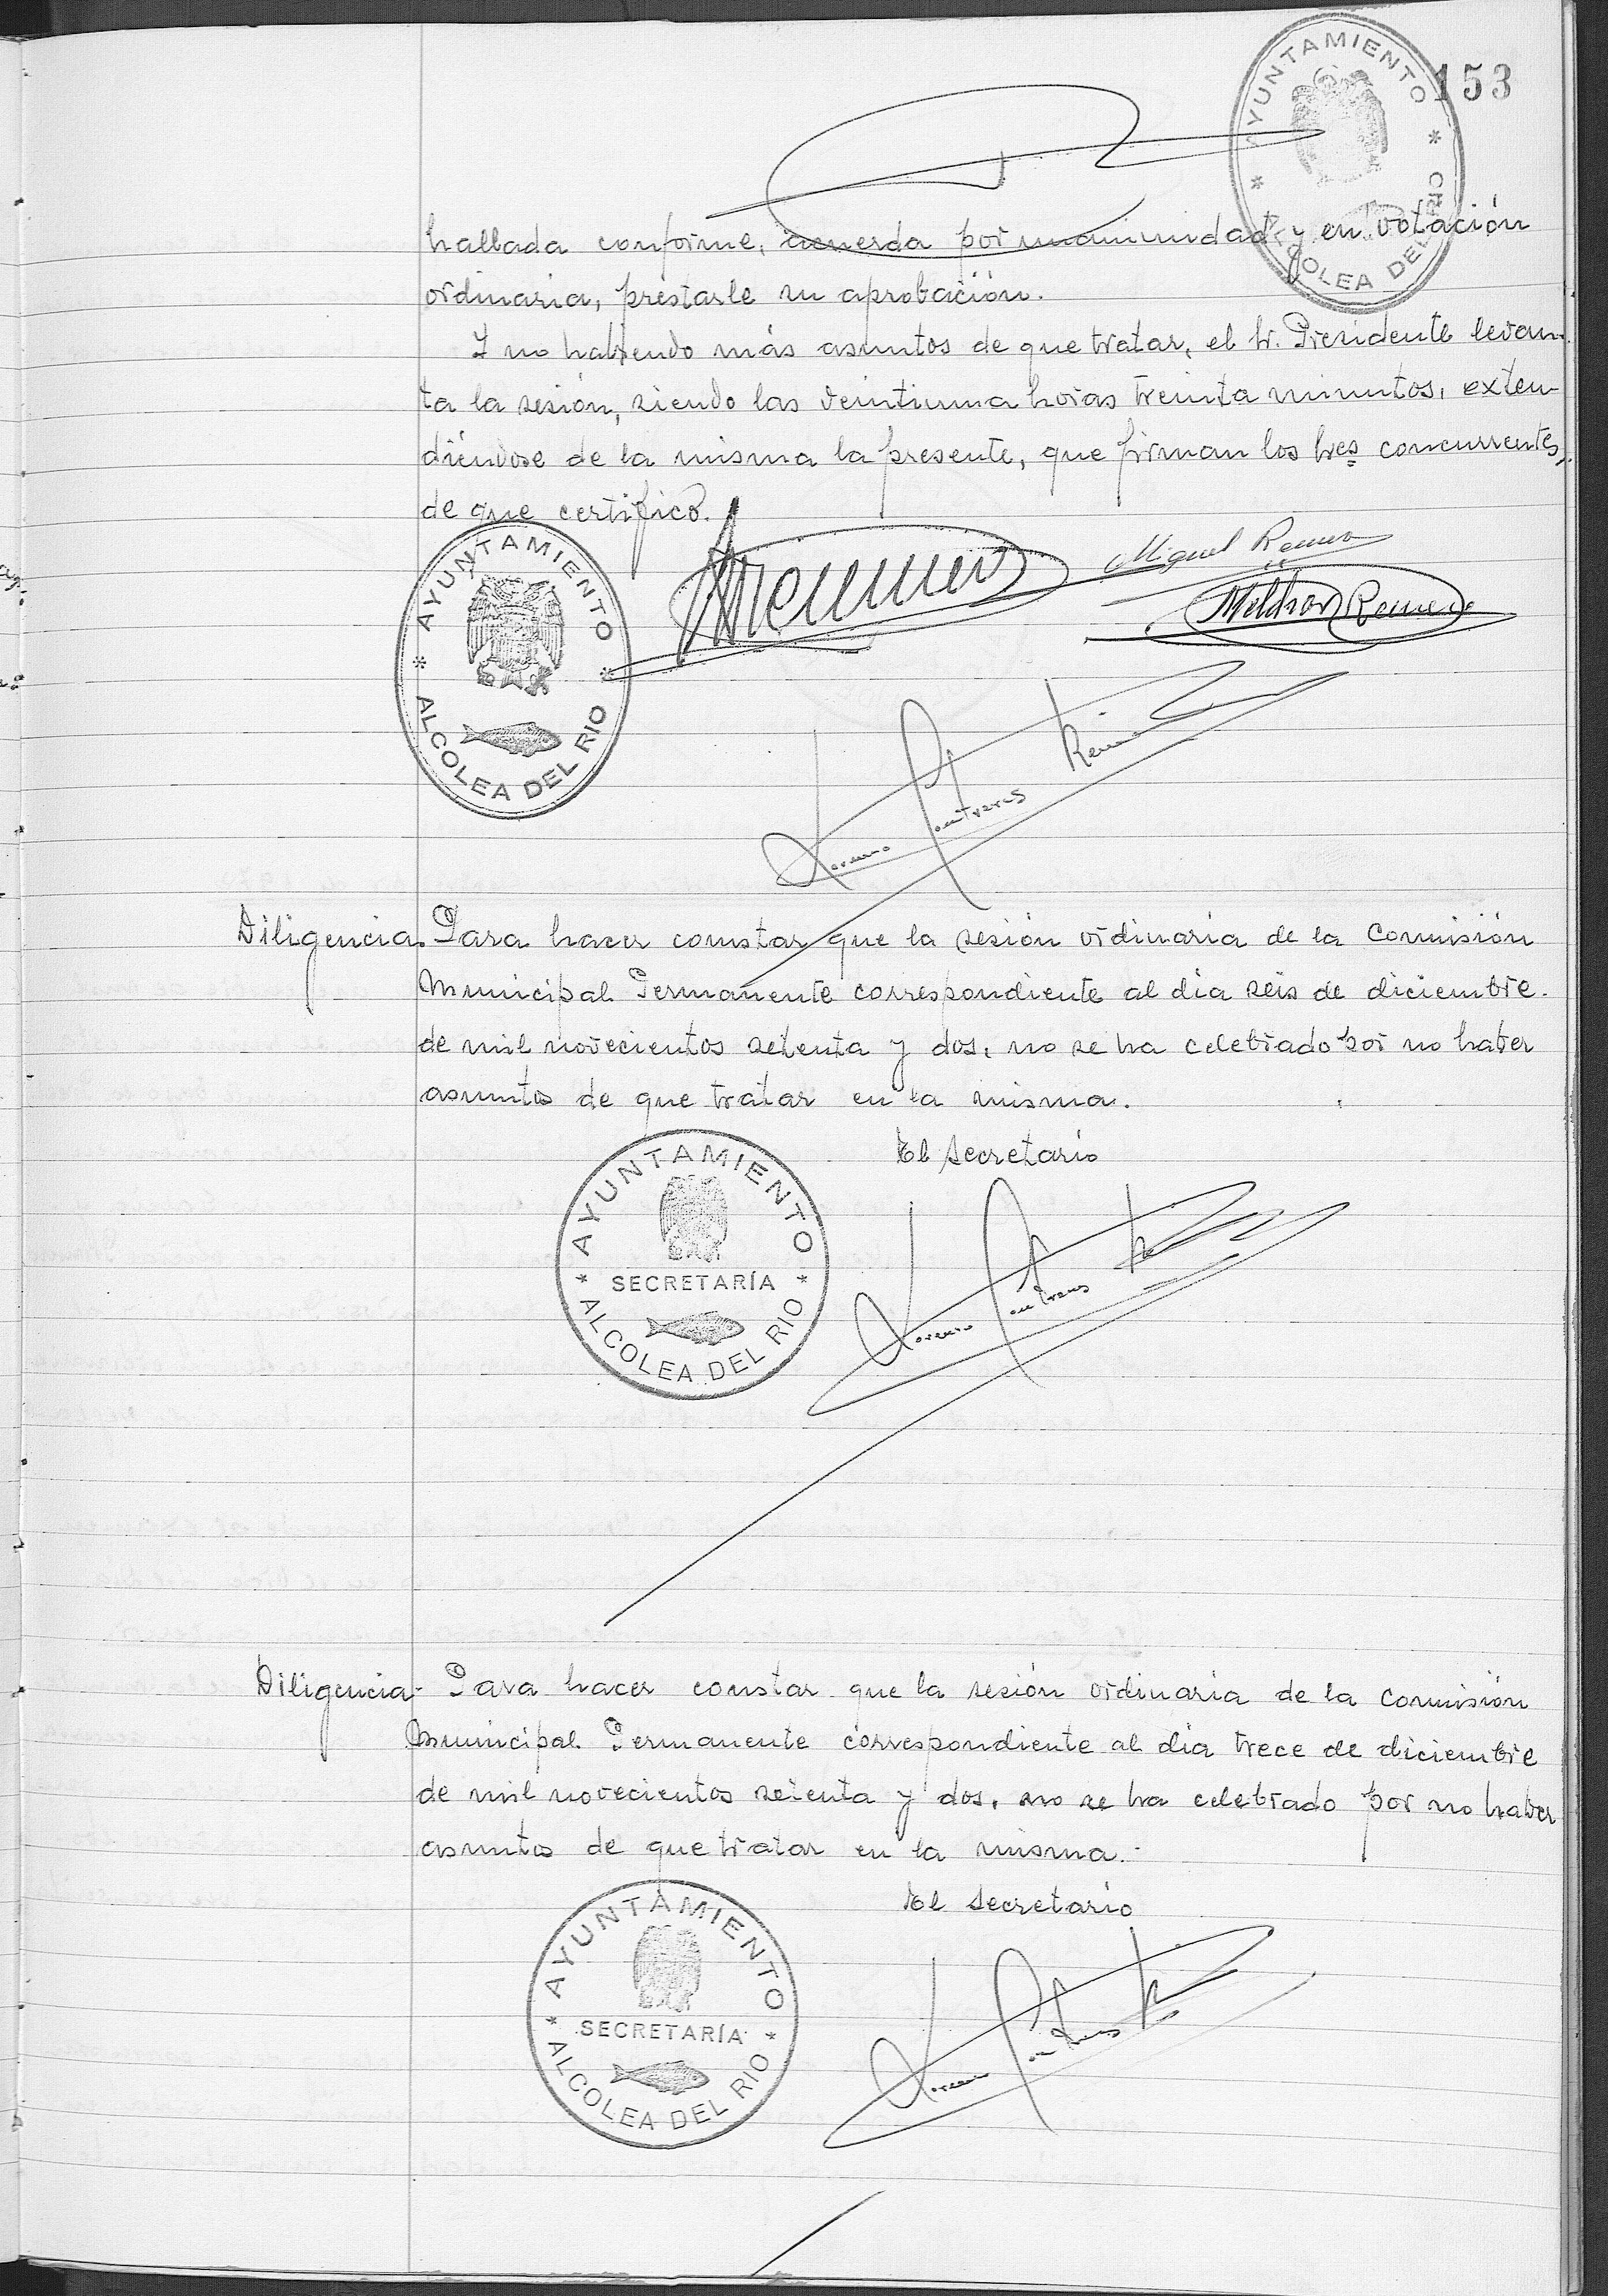 153
AYUNTAMIENTO * ALCOLEA DEL RIO *
hallada conforme, acuerda por unanimidad y en votación
ordinaria, préstarle su aprobación.
Y no habiendo más asuntos de que tratar, el Sr. Presidente levan-
ta la sesión, siendo las veintiuna horas treinta minutos, exten-
diéndose de la misma la presente, que firman los Sres concurrentes,
de que certifico.
AYUNTAMIENTO * ALCOLEA DEL RIO *
Miguel Romero
Melchor Romero
Lorenzo Contreras
Diligencia. Para hacer constar que la sesión ordinaria de la Comisión
Municipal Permanente correspondiente al día seis de diciembre.
de mil novecientos setenta y dos, no se ha celebrado por no haber
asuntos de que tratar en la misma.
El Secretario
AYUNTAMIENTO * SECRETARÍA * ALCOLEA DEL RIO
Lorenzo Contreras
Diligencia- Para hacer constar que la sesión ordinaria de la Comisión
Municipal Permanente correspondiente al día trece de diciembre
de mil novecientos setenta y dos, no se ha celebrado por no haber
asuntos de que tratar en la misma.-
El Secretario
AYUNTAMIENTO * SECRETARÍA * ALCOLEA DEL RIO
Lorenzo Contreras